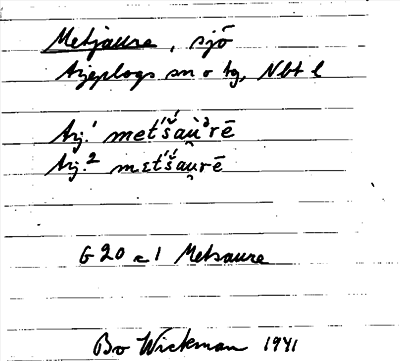 Metjaure, sjö
Arjeplogs sn o tg, Nbt l
Arj.¹ met́š́au̯ᵊrē
Arj.² mɛt́š́au̯rē
G 20 a 1 Metsaure
Bo Wickman 1941